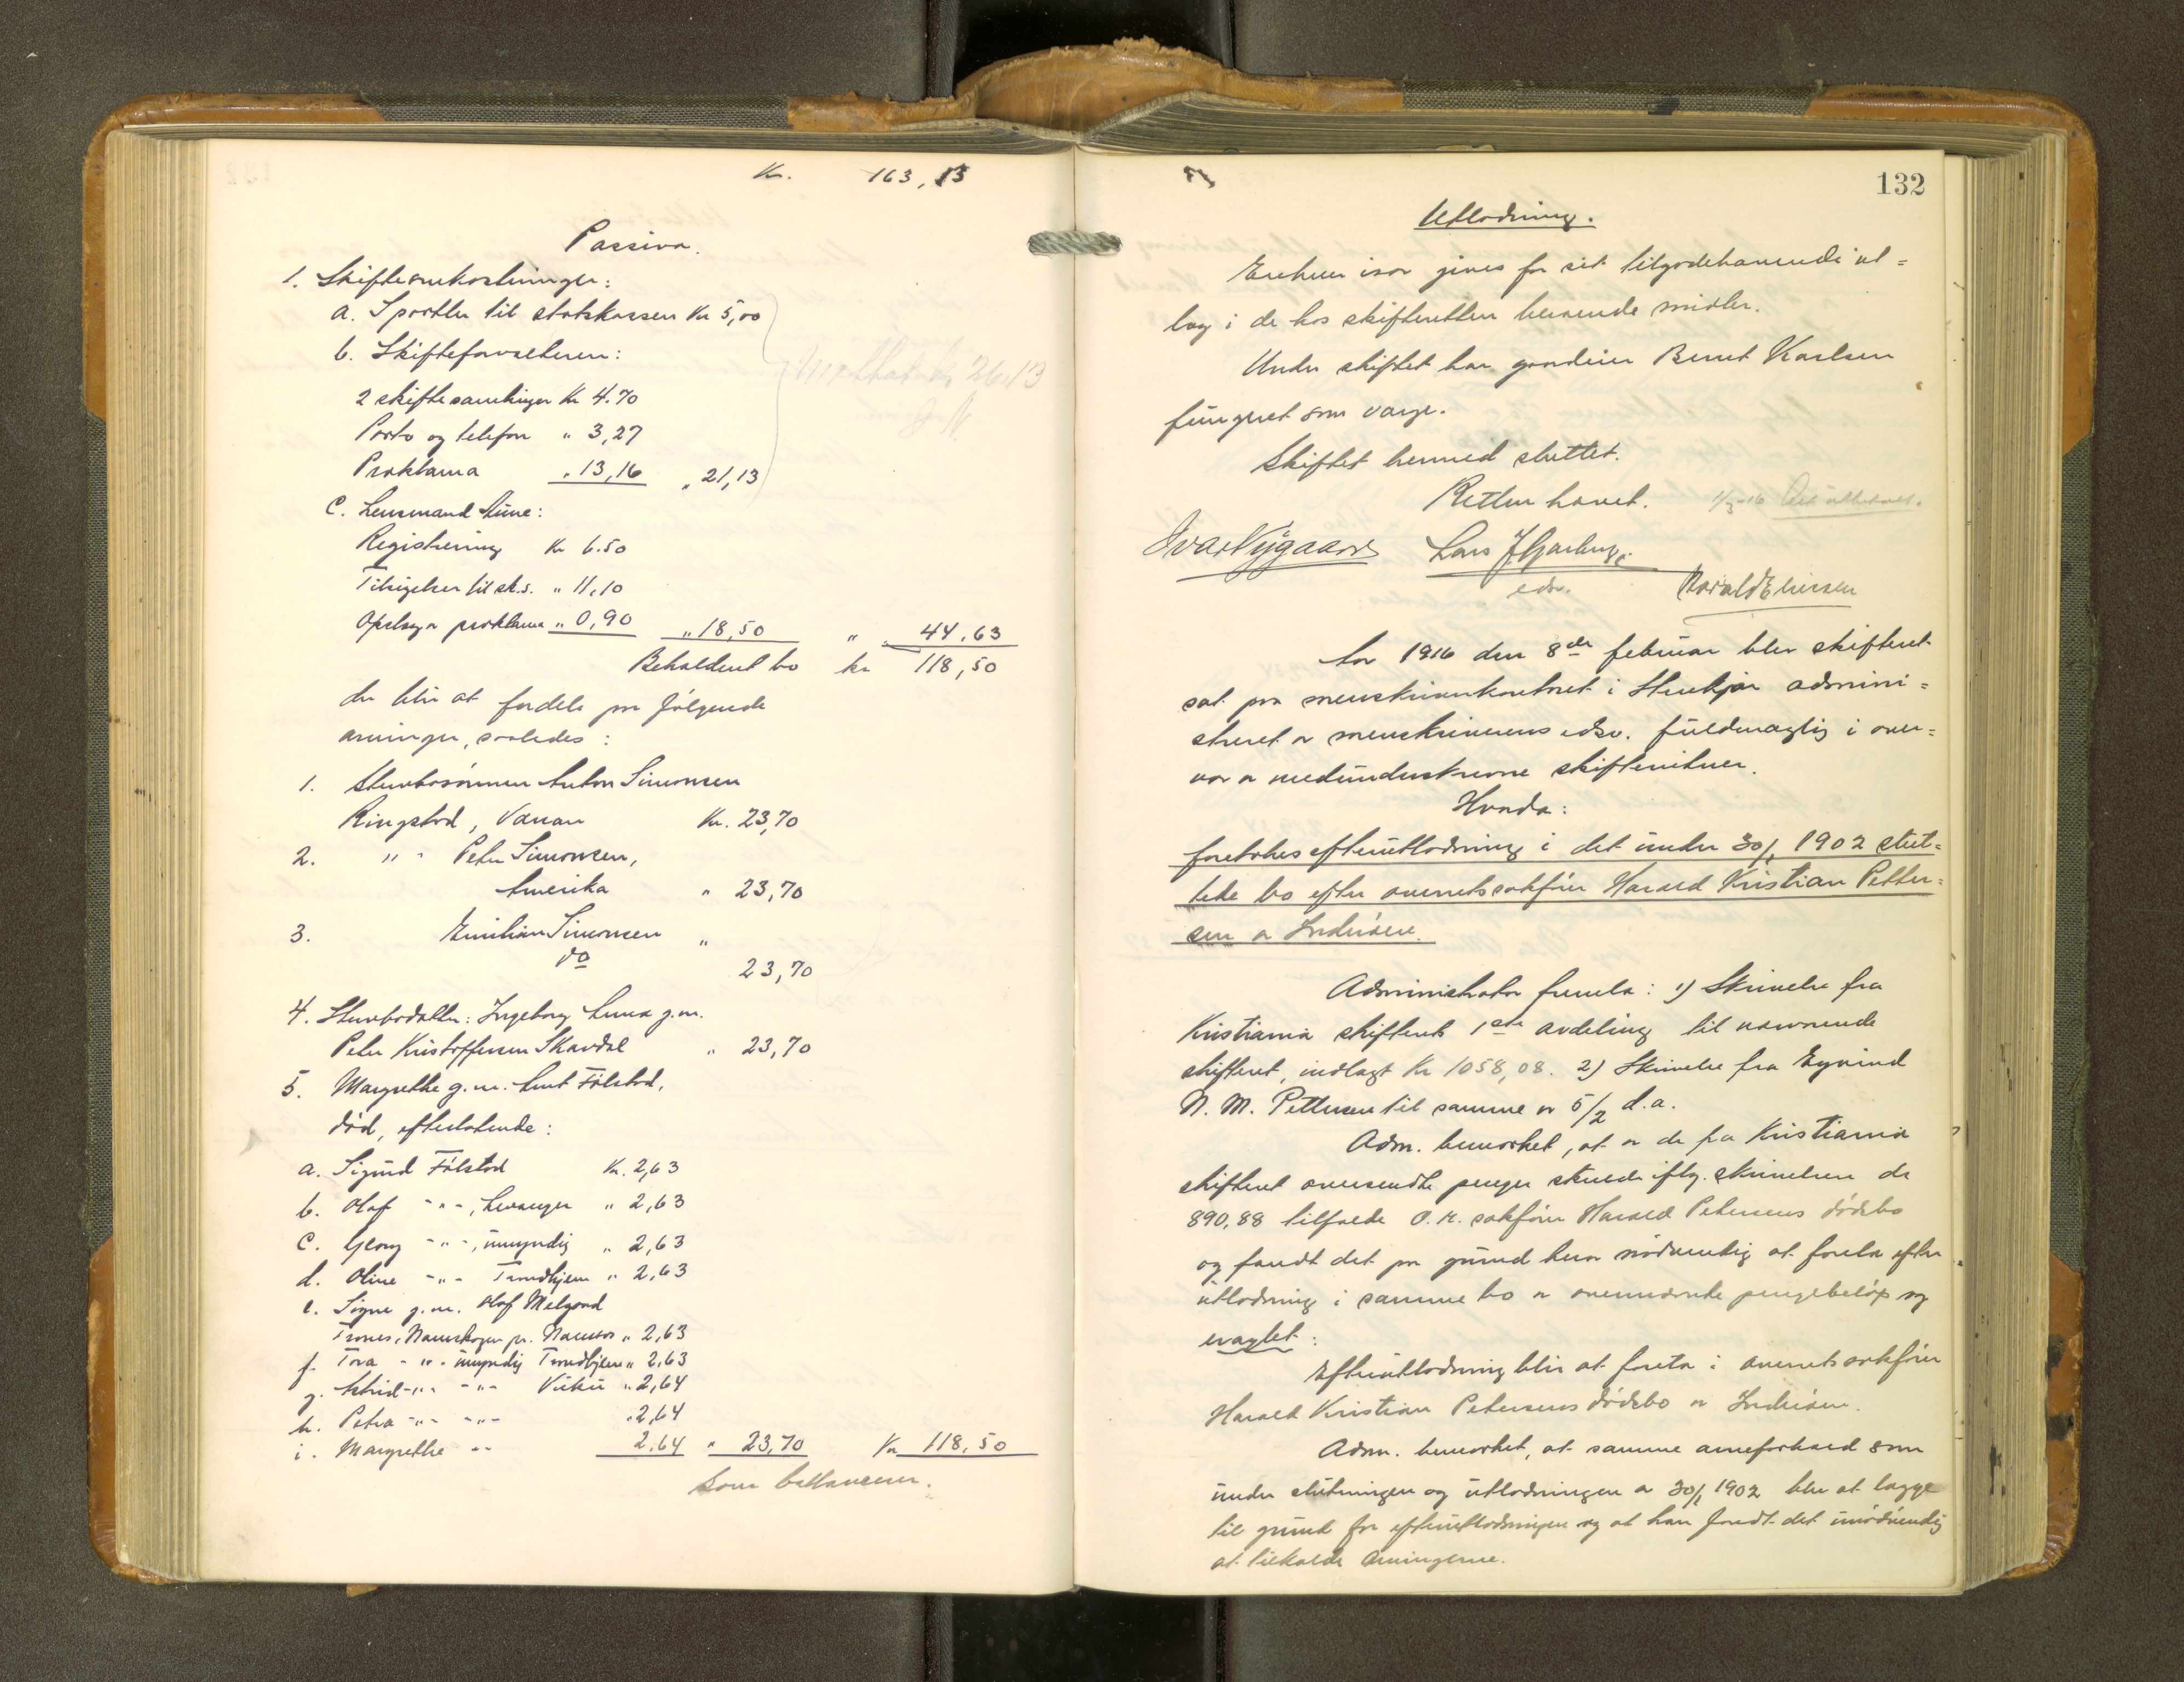 Kr. 163,13
Passiva.
1. Skifteomkostninger:
a. Sportler til statskassen Kr 5,00
b. Skifteforvalteren:
2 skiftesamlinger Kr 4.70
Porto og telefon " 3,27
Proklama " 13,16 " 21,13
Kr 26,13
c. Lensmand
Registrering Kr 6.50
Tilsigelser til sk.s. " 11,10
Opslag a proklama " 0,90 " 18,50 " 44,63
Beholdent bo kr 118,50
der blir at fordele paa følgende
arvinger, saaledes:
1. Stervbosønnen Anton Simonsen
Ringstad, Kr. 23,70
2. " - Peter Simonsen,
Amerika " 23,70
3. Emilian Simonsen "
do 23,70
4. Stervbodatter: Ingeborg Anna g.m.
Peter Kristoffersen Skavdal " 23,70
5. Margrethe g.m. Følstad,
død, efterlatende:
a. Sigurd Følstad Kr. 2,63
b. Olaf -"-, Levanger " 2,63
c. Georg -"-, umyndig " 2,63
d. Oline -"- Trondhjem " 2,63
e. Signe g.m. Olaf Melgaard
Trones, Namskogen pr. Namsos " 2,63
f. Tora -"- umyndig Trondhjem " 2,63
g. Astrid -"- -"- " 2,64
h. Petra -"- -"- " 2,64
i. Margrethe -"- 2,64 " 23,70 Kr 118,50
som ballancerer.
132
Utlodning.
Enhver især gives for sit tilgodehavende ut=
læg i de hos skifteretten beroende midler.
Under skiftet har gaardeier Bernt Karlsen
fungeret som verge.
Skiftet hermed sluttet.
Retten hævet. 1/3-16 Alt utbetalt.
Ivar Nygaard Lars J Gjarberg
edsv. Harald
Aar 1916 den 8de februar blev skifteret
sat paa sorenskriverkontoret i Stenkjær admini=
streret av sorenskriverens edsv. fuldmægtig i over=
vær av medunderskrevne skiftevitner.
Hvorda:
foretokes efterutlodning i det under 30/1 1902 slut=
tede bo efter overretssakfører Harald Kristian Petter=
sen av Inderøen.
Administrator fremla: 1) Skrivelse fra
Kristiania skifteret 1ste avdeling til nærværende
skifteret, indlagt Kr 1058,08. 2) Skrivelse fra Eyvind
N. M. Pettersen til samme av 5/2 d.a.
Adm. bemerket, at av de fra Kristiania
skifteret oversendte penger skulde iflg. skrivelsen de
890,88 tilfalde O.R. sakfører Harald Petersens dødsbo
og fandt det paa grund herav nødvendig at foreta efter
utlodning i samme bo av ovennævnte pengebeløp og
eragtet:
Efterutlodning blir at foreta i overretssakfører
Harald Kristian Petersens dødsbo av Inderøen.
Adm. bemerket, at samme arveforhold som
under slutningen og utlodningen av 30/1 1902 blir at lægge
til grund for efterutlodningen og at han fandt det unødvendig
at tilkalde arvingerne.